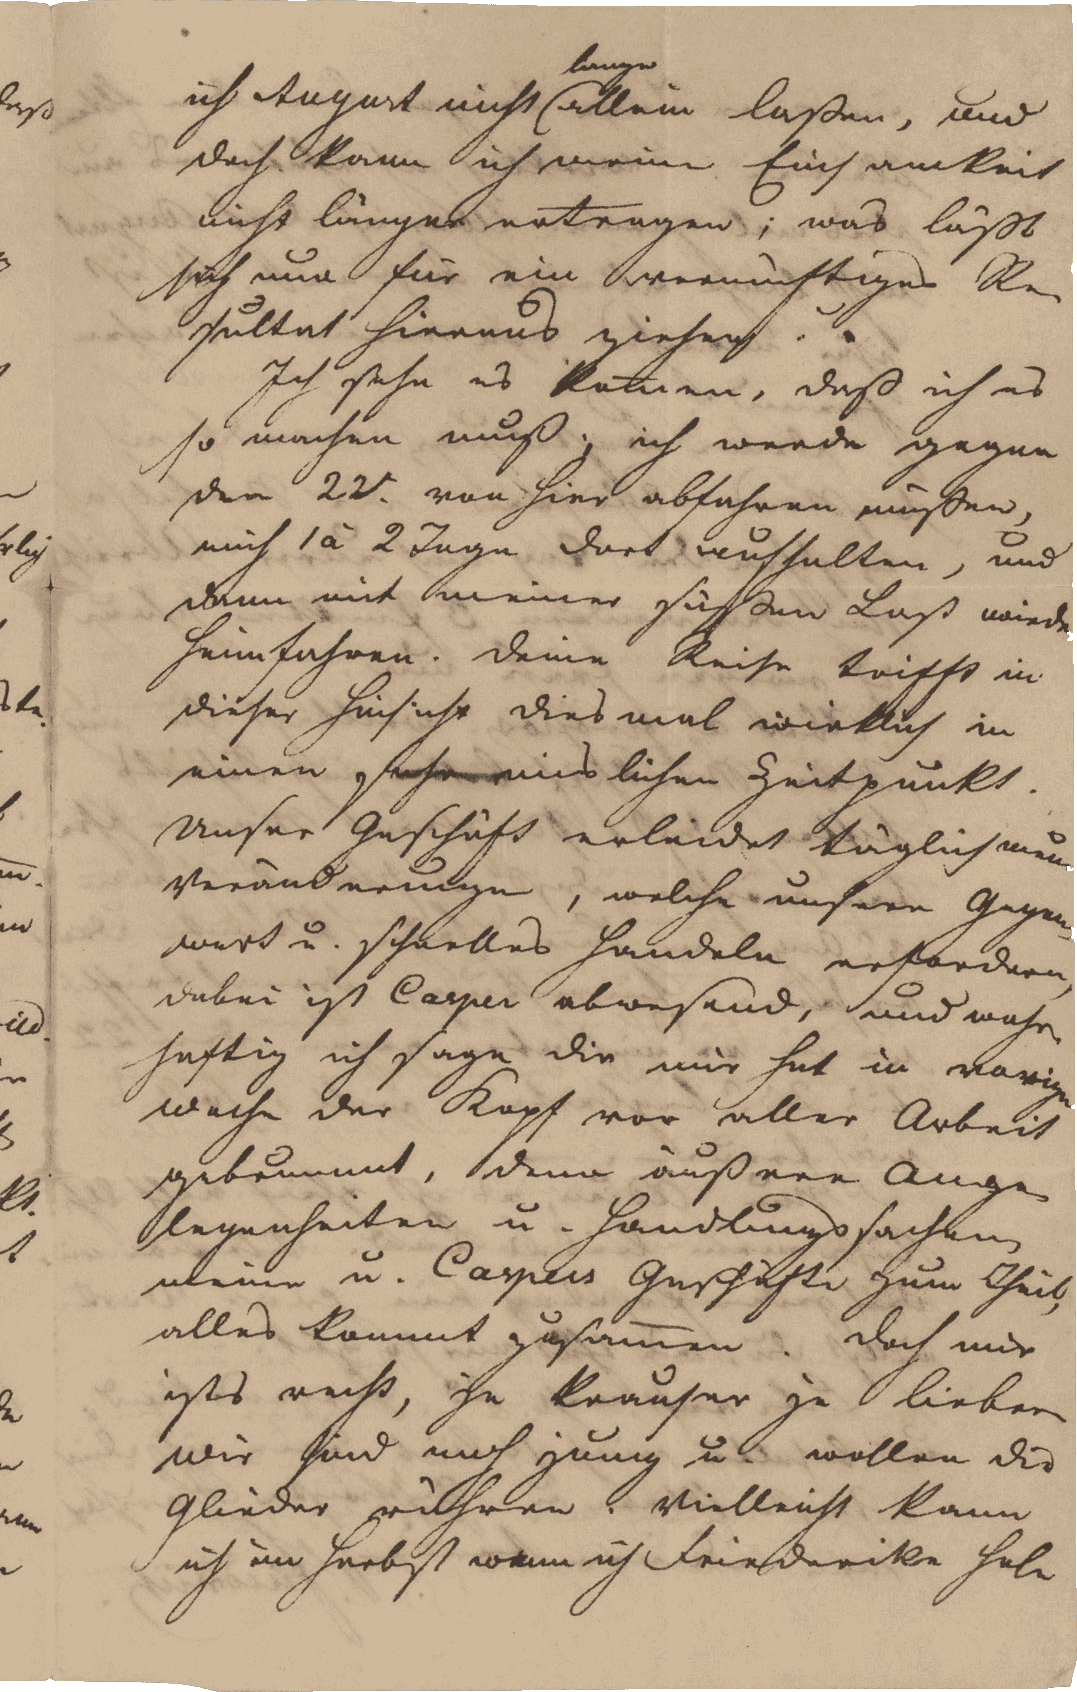 lange
ich August nicht (allein laßen, und
doch kann ich meine Einsamkeit
nicht länger ertragen; was läßt
sich nun für ein vernünftiges Re-
sultat hieraus ziehen?
Ich sehe es kom̄en, daß ich es
so machen muß; ich werde gegen
den 22t. von hier abfahren müßen,
mich 1 à 2 Tage dort aufhalten, und
dann mit meiner süßen Last wieder
heimfahren. Deine Reise trifft in
dieser Hinsicht diesmal wirklich in
einen sehr mislichen Zeitpunkt.
Unser Geschäft erleidet täglich neue
Veränderungen, welche unsere Gegen-
wart u. schnelles Handeln erfordern,
dabei ist Casper abwesend, und wahr-
haftig ich sage dir mir hat in voriger
Woche der Kopf vor aller Arbeit
gebrummt, denn äußere Ange-
legenheiten u. Handlungssachen
meine u. Caspers Geschäfte zum Theil,
alles kommt zusam̄en. Doch mir
ists recht, je krauser je lieber
wir sind noch jung u. wollen die
Glieder rühren. Vielleicht kann
ich im Herbst wenn ich Friederike hole